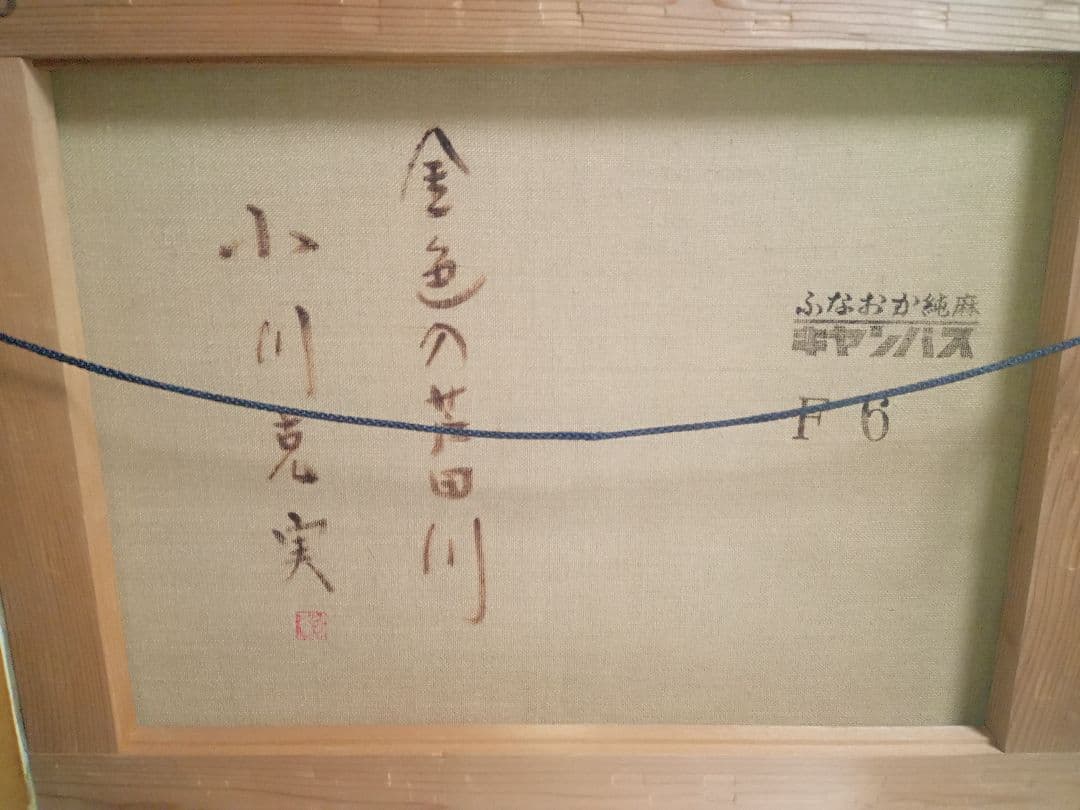 ふなおか純麻
キヤンバス
F 6
金色の芦田川
小川克実